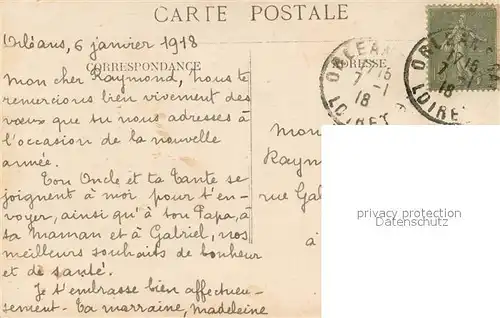 CARTE POSTALE
Orléans, 6 janvier 1918
CORRESPONDANCE
ADRESSE
Mon cher Raymond, nous te
remercions bien vivement des
vœux que tu nous adresses à
l'occasion de la nouvelle
année.
Ton Oncle et ta Tante se
joignent à moi pour t'en-
voyer, ainsi qu'à ton Papa, à
ta Maman et à Gabriel, nos
meilleurs souhaits de bonheur
et de santé.
Je t'embrasse bien affectueu-
sement - Ta marraine, Madeleine
ORLEANS
7 - 1
18
LOIRET
ORLEANS
7
18
LOIRET
Mon
Raym
rue Ga
à
privacy protection